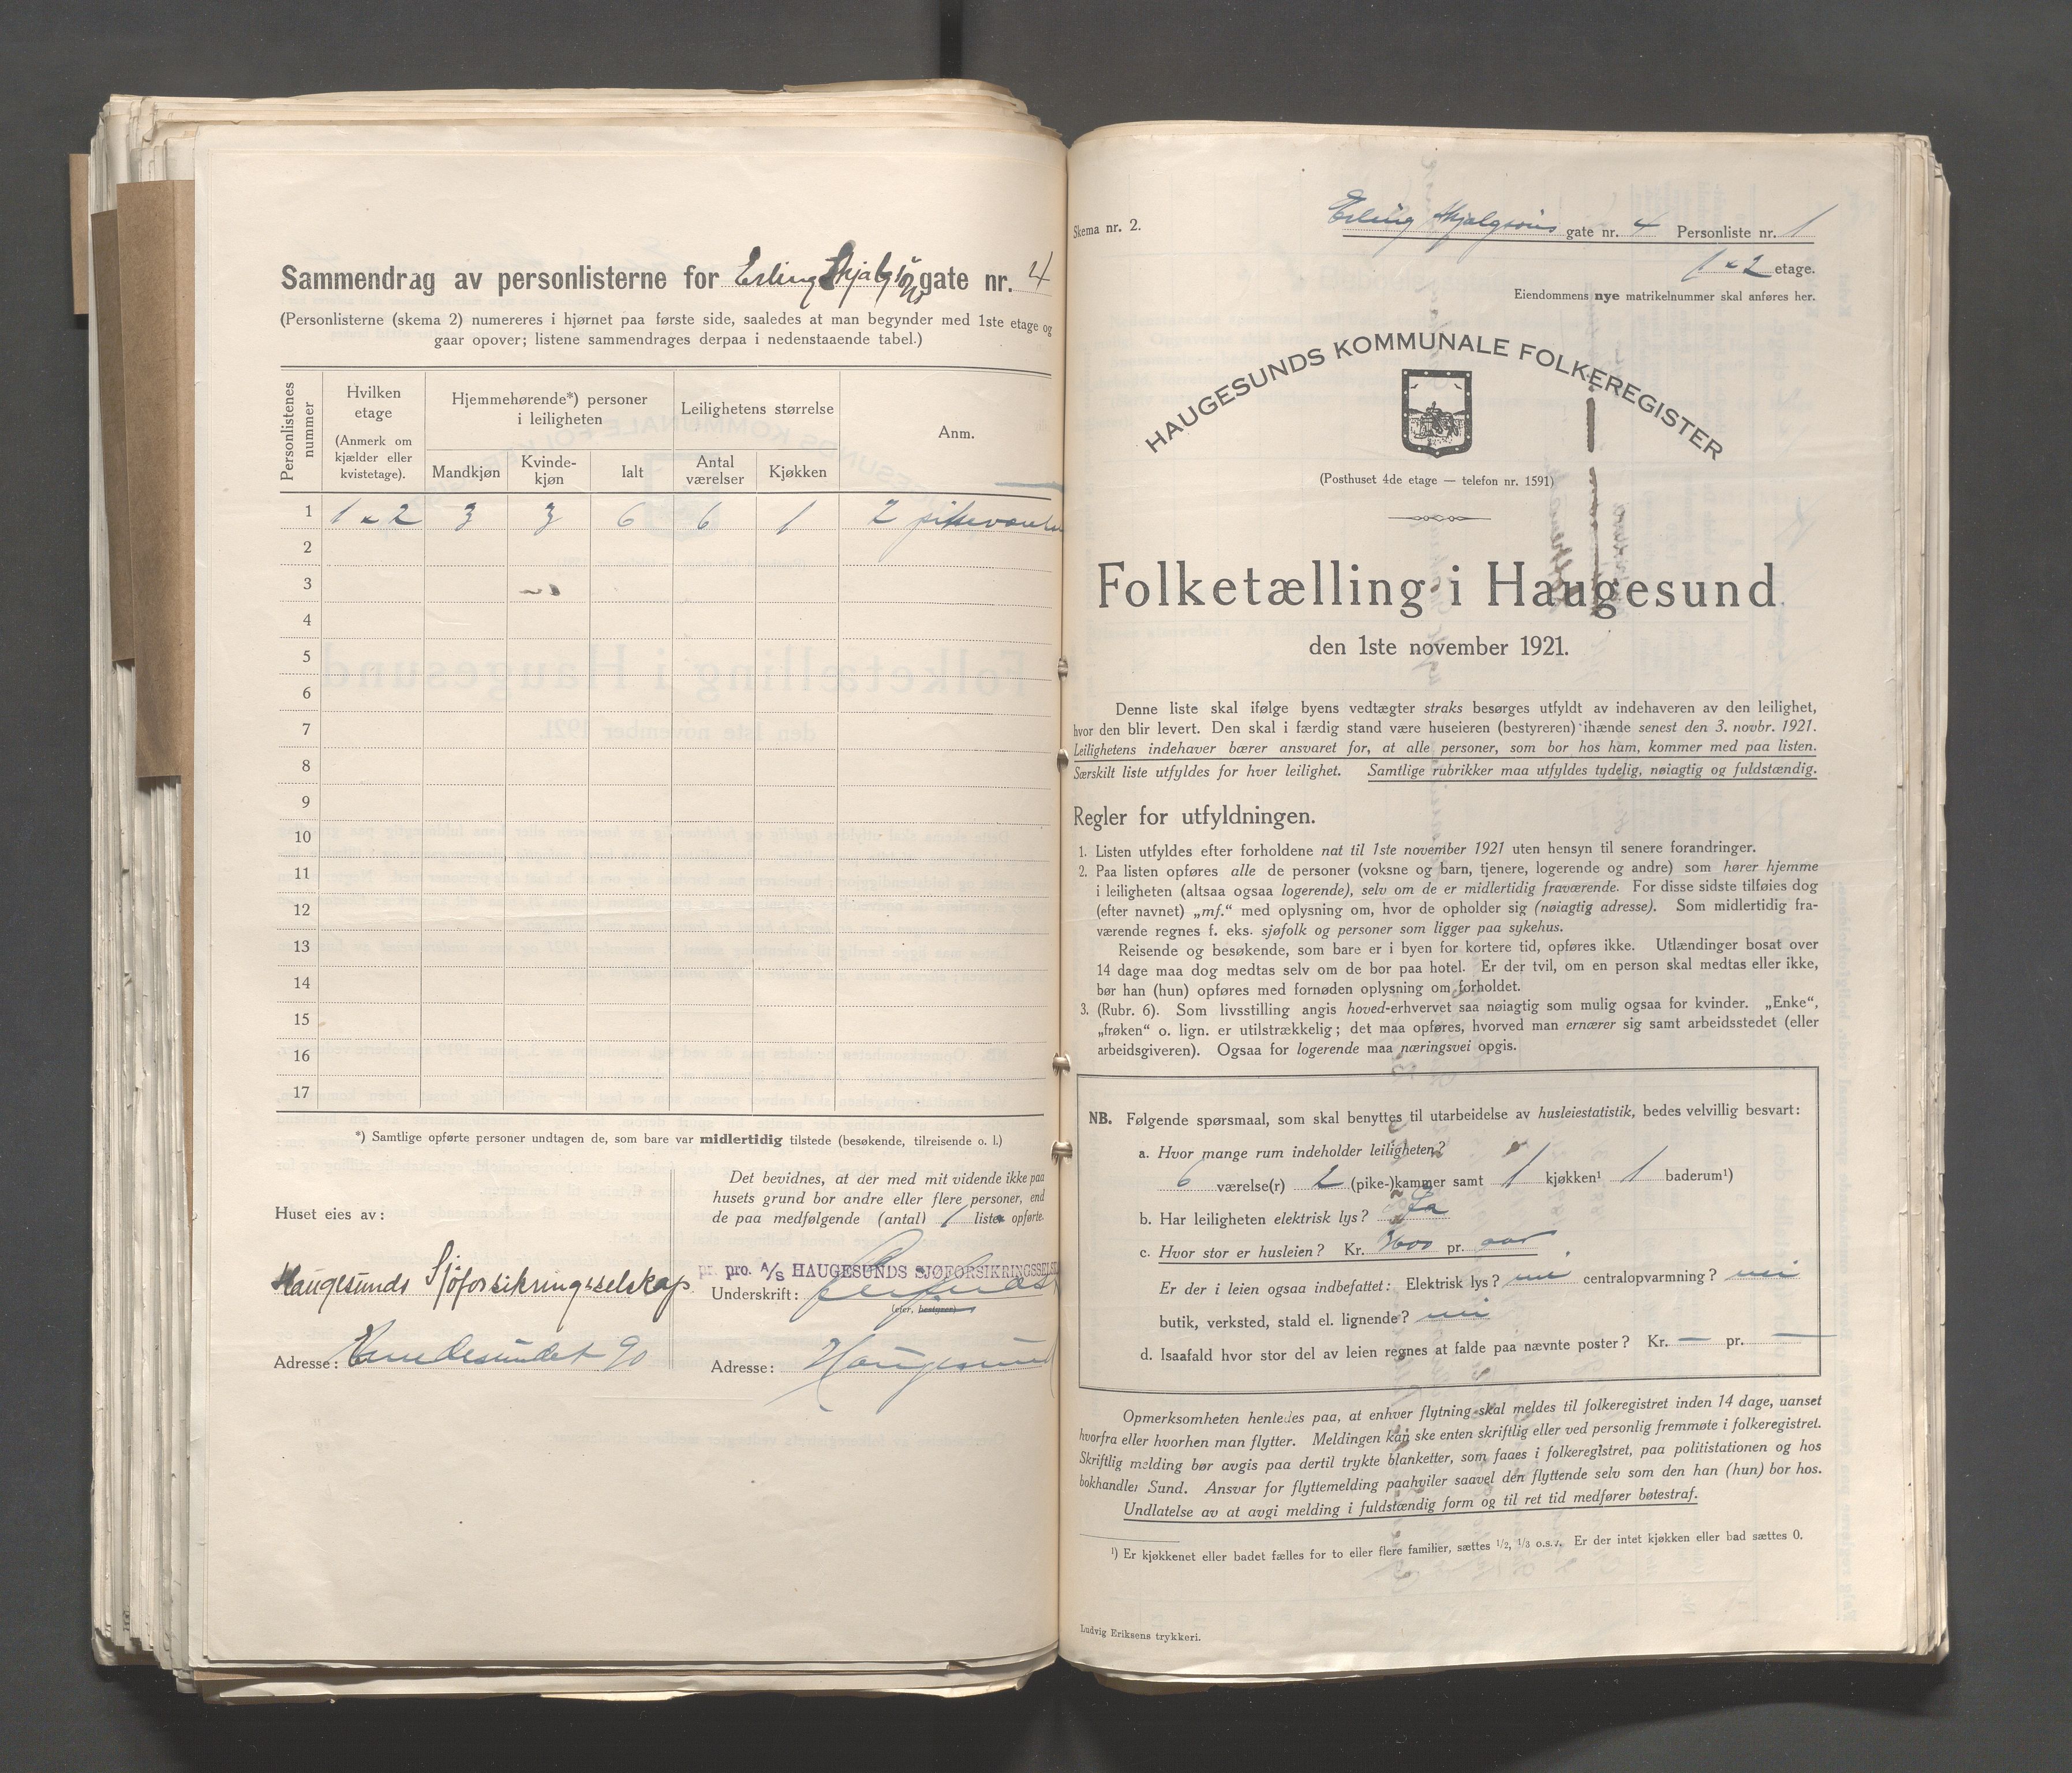 Sammendrag av personlisterne for Erling Skjalgsøns gate nr. 4
(Personlisterne (skema 2) numereres i hjørnet paa første side, saaledes at man begynder med 1ste etage og
gaar opover; listene sammendrages derpaa i nedenstaaende tabel.)
Personlistenes nummer
Hvilken etage
(Anmerk om kjælder eller kvistetage).
Hjemmehørende*) personer i leiligheten
Leilighetens størrelse
Anm.
Mandkjøn
Kvinde-kjøn
Ialt
Antal værelser
Kjøkken
1 1 & 2 3 3 6 6 1 2
2
3
4
5
6
7
8
9
10
11
12
13
14
15
16
17
*) Samtlige opførte personer undtagen de, som bare var midlertidig tilstede (besøkende, tilreisende o. l.)
Huset eies av:
Haugesunds Sjøforsikringsselskap
Adresse: 90
Det bevidnes, at der med mit vidende ikke paa
husets grund bor andre eller flere personer, end
de paa medfølgende (antal) 1 lister opførte.
pr. pro. A/S HAUGESUNDS SJØFORSIKRINGSSELSK
Underskrift:
(eier, bestyrer)
Adresse: Haugesund
Skema nr. 2.
Erling Skjalgsøns gate nr. 4 Personliste nr. 1
1 & 2 etage.
Eiendommens nye matrikelnummer skal anføres her.
HAUGESUNDS KOMMUNALE FOLKEREGISTER
(Posthuset 4de etage — telefon nr. 1591)
Folketælling i Haugesund
den 1ste november 1921.
Denne liste skal ifølge byens vedtægter straks besørges utfyldt av indehaveren av den leilighet,
hvor den blir levert. Den skal i færdig stand være huseieren (bestyreren) ihænde senest den 3. novbr. 1921.
Leilighetens indehaver bærer ansvaret for, at alle personer, som bor hos ham, kommer med paa listen.
Særskilt liste utfyldes for hver leilighet. Samtlige rubrikker maa utfyldes tydelig, nøiagtig og fuldstændig.
Regler for utfyldningen.
1. Listen utfyldes efter forholdene nat til 1ste november 1921 uten hensyn til senere forandringer.
2. Paa listen opføres alle de personer (voksne og barn, tjenere, logerende og andre) som hører hjemme
i leiligheten (altsaa ogsaa logerende), selv om de er midlertidig fraværende. For disse sidste tilføies dog
(efter navnet) „mf.“ med oplysning om, hvor de opholder sig (nøiagtig adresse). Som midlertidig fra-
værende regnes f. eks. sjøfolk og personer som ligger paa sykehus.
Reisende og besøkende, som bare er i byen for kortere tid, opføres ikke. Utlændinger bosat over
14 dage maa dog medtas selv om de bor paa hotel. Er der tvil, om en person skal medtas eller ikke,
bør han (hun) opføres med fornøden oplysning om forholdet.
3. (Rubr. 6). Som livsstilling angis hoved-erhvervet saa nøiagtig som mulig ogsaa for kvinder. „Enke“,
„frøken“ o. lign. er utilstrækkelig; det maa opføres, hvorved man ernærer sig samt arbeidsstedet (eller
arbeidsgiveren). Ogsaa for logerende maa næringsvei opgis.
NB. Følgende spørsmaal, som skal benyttes til utarbeidelse av husleiestatistik, bedes velvillig besvart:
a. Hvor mange rum indeholder leiligheten?
6 værelse(r) 2 (pike-)kammer samt 1 kjøkken¹ 1 baderum¹)
b. Har leiligheten elektrisk lys? Ja
c. Hvor stor er husleien? Kr. 3600 pr. aar
Er der i leien ogsaa indbefattet: Elektrisk lys? nei centralopvarmning? nei
butik, verksted, stald el. lignende? nei
d. Isaafald hvor stor del av leien regnes at falde paa nævnte poster? Kr. — pr. —
Opmerksomheten henledes paa, at enhver flytning skal meldes til folkeregistret inden 14 dage, uanset
hvorfra eller hvorhen man flytter. Meldingen kan ske enten skriftlig eller ved personlig fremmøte i folkeregistret.
Skriftlig melding bør avgis paa dertil trykte blanketter, som faaes i folkeregistret, paa politistationen og hos
bokhandler Sund. Ansvar for flyttemelding paahviler saavel den flyttende selv som den han (hun) bor hos.
Undlatelse av at avgi melding i fuldstændig form og til ret tid medfører bøtestraf.
¹) Er kjøkkenet eller badet fælles for to eller flere familier, sættes 1/2, 1/3 o.s.v. Er der intet kjøkken eller bad sættes 0.
Ludvig Eriksens trykkeri.